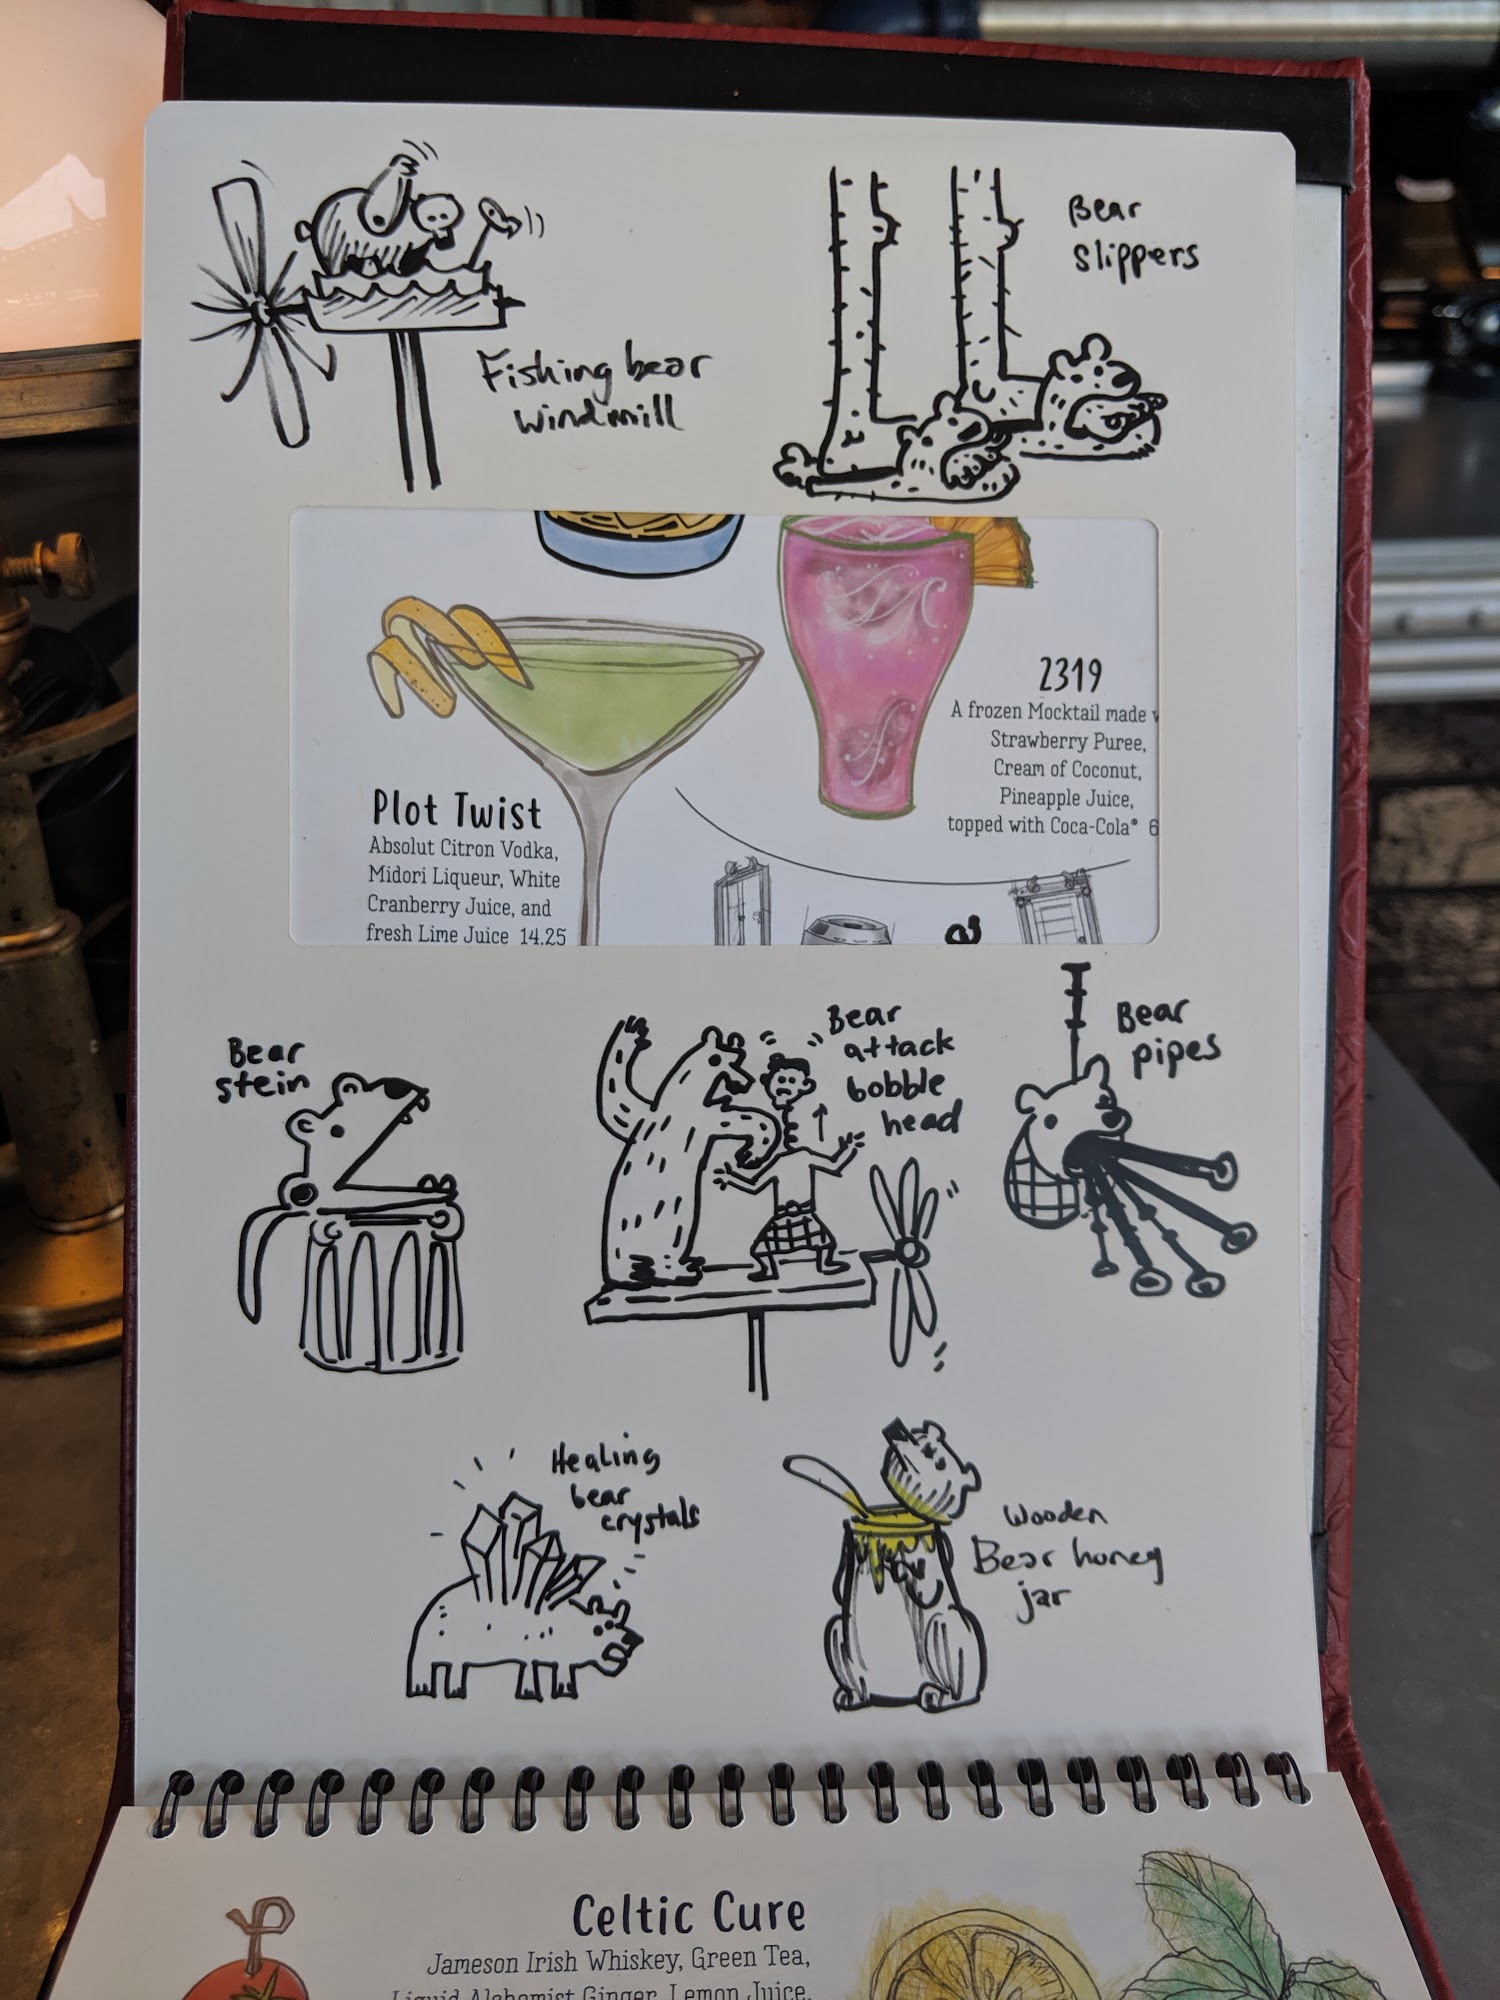 Fishing bear
windmill
Bear
slippers
2319
A frozen Mocktail made
Strawberry Puree,
Cream of Coconut,
Pineapple Juice,
topped with Coca-Cola® 6
Plot Twist
Absolut Citron Vodka,
Midori Liqueur, White
Cranberry Juice, and
fresh Lime Juice 14.25
Bear
stein
Bear
attack
bobble
head
Bear
pipes
Healing
bear
crystals
Wooden
Bear honey
jar
Celtic Cure
Jameson Irish Whiskey, Green Tea,
Liquid Alchemist Ginger, Lemon Juice,